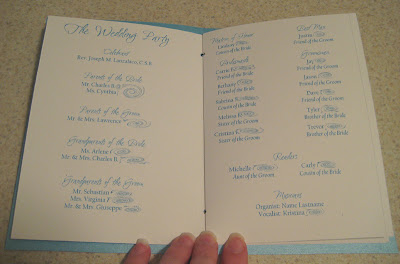 The Wedding Party
Celebrant
Rev. Joseph M.
Parents of the Bride
Mr. Charles B.
Ms. Cynthia
Parents of the Groom
Mr. & Mrs. Lawrence
Grandparents of the Bride
Ms. Arlene
Mr. & Mrs. Charles B.
Grandparents of the Groom
Mr. Sebastian
Mrs. Virginia
Mr. & Mrs. Giuseppe
Matron of Honor
Lindsay
Cousin of the Bride
Bridesmaids
Carrie
Friend of the Bride
Bethany
Friend of the Bride
Sabrina
Cousin of the Groom
Melissa
Sister of the Groom
Cristina
Sister of the Groom
Best Man
Justin
Friend of the Groom
Groomsmen
Jay
Friend of the Groom
Jason
Friend of the Groom
Dave
Friend of the Groom
Tyler
Brother of the Bride
Trevor
Brother of the Bride
Readers
Michelle
Aunt of the Groom
Carly
Cousin of the Bride
Musicians
Organist: Name Lastname
Vocalist: Kristina